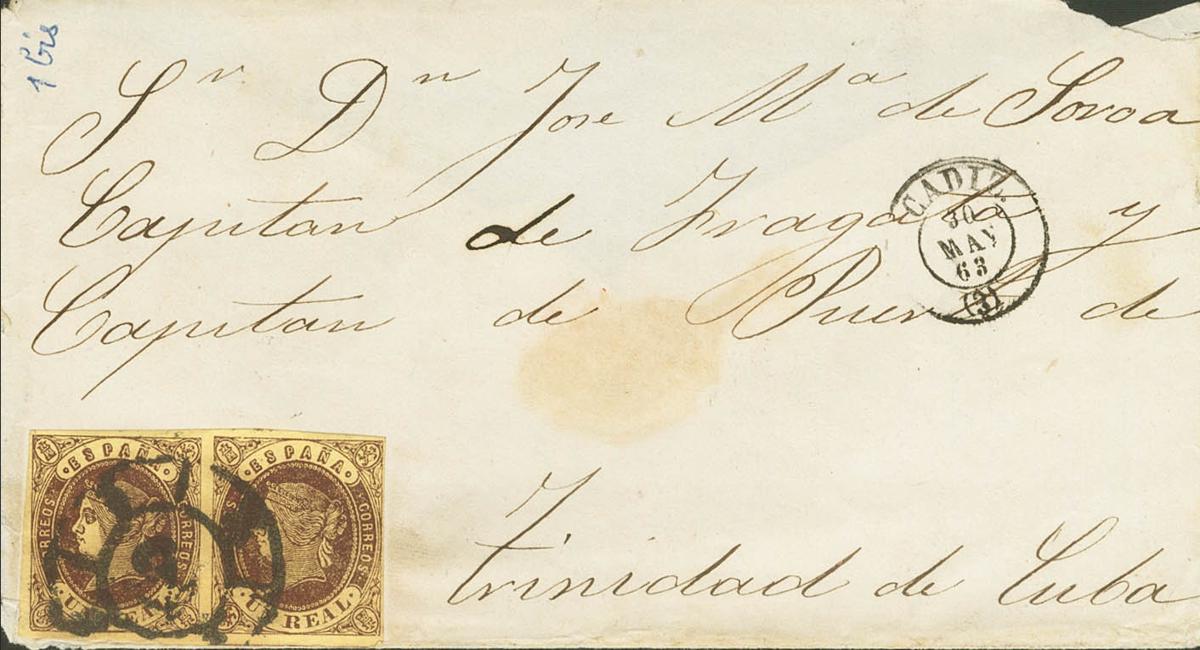 1 bis
Sr Dn Jose Ma de Soroa
Capitan de Fragata y
Capitan de Puerto de
Trinidad de Cuba
CADIZ.
30
MAY
63
(3)
·ESPAÑA·
CORREOS·
·CORREOS
UN REAL
·ESPAÑA·
·CORREOS
UN REAL